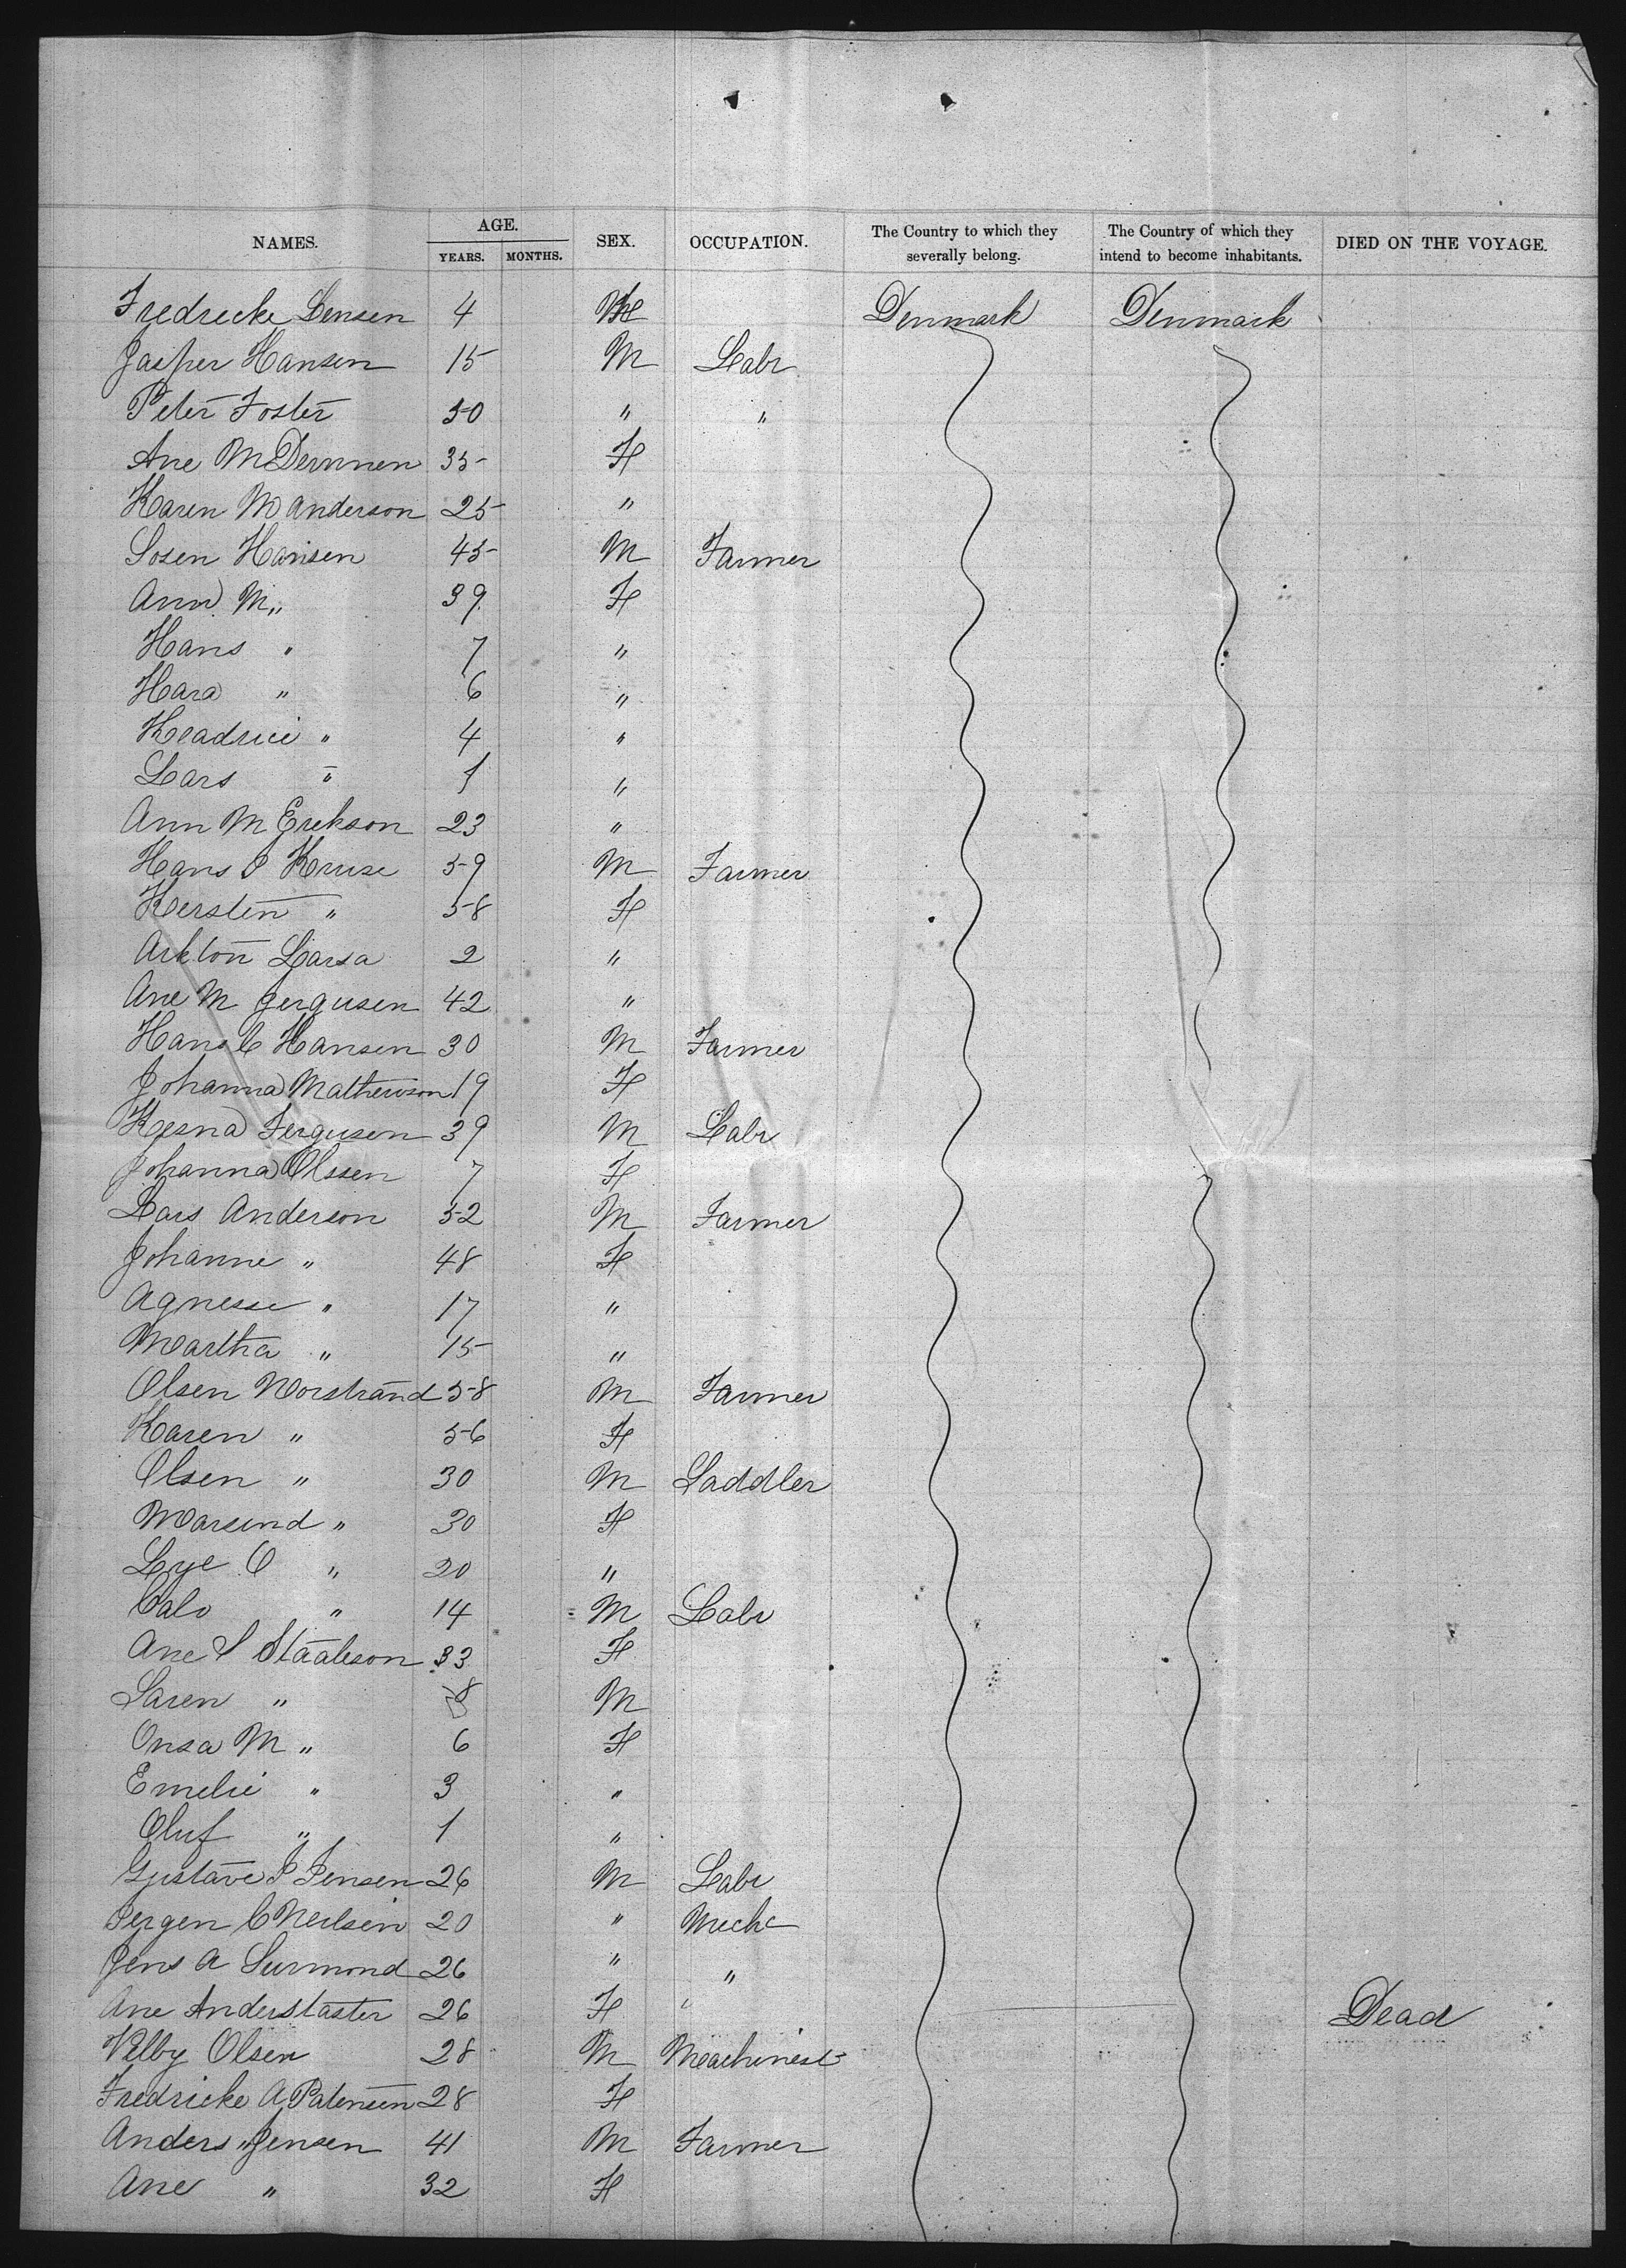 NAMES. AGE. SEX. OCCUPATION. The Country to which they severally belong. The Country of which they intend to become inhabitants. DIED ON THE VOYAGE.
YEARS. MONTHS.
Fredrecke Lensen 4 Denmark Denmark
Jasper Hansen 15 M Labr
Peter Foster 50 " "
Ane M Demmen 35 F
Karen M Anderson 25 "
Sosen Hansen 45 M Farmer
Ann M " 39 F
Hans " 7 "
Hara " 6 "
Headrici " 4 "
Lars " 1 "
Ann M Erekson 23 "
Hans P Kruse 59 M Farmer
Kersten " 58 F
Larsa 2 "
Ane M Jergusen 42 "
Hans C Hansen 30 M Farmer
Johanna Mathewson 19 F
Kesna Jergusen 39 M Labr
Johanna Olssen 7 F
Lars Anderson 52 M Farmer
Johanne " 48 F
Agnesse " 17 "
Martha " 15 "
Olsen Norstrand 58 M Farmer
Karen " 56 F
Olsen " 30 M Saddler
Marsend " 30 F
Lye O " 20 "
Calo " 14 M Labr
Ane S Staalson 33 F
Saren " 8 M
Onsa M " 6 F
Emelie " 3 "
Oluf " 1 "
Gustave P Jensen 26 M Labr
Jergen C Neilsen 20 " Mechc
Jens A Surmond 26 " "
Ane Anderstaster 26 F " Dead
Velby Olsen 28 M Meachinest
Fredricke A Patersen 28 F
Anders " Jensen 41 M Farmer
Ane " 32 F